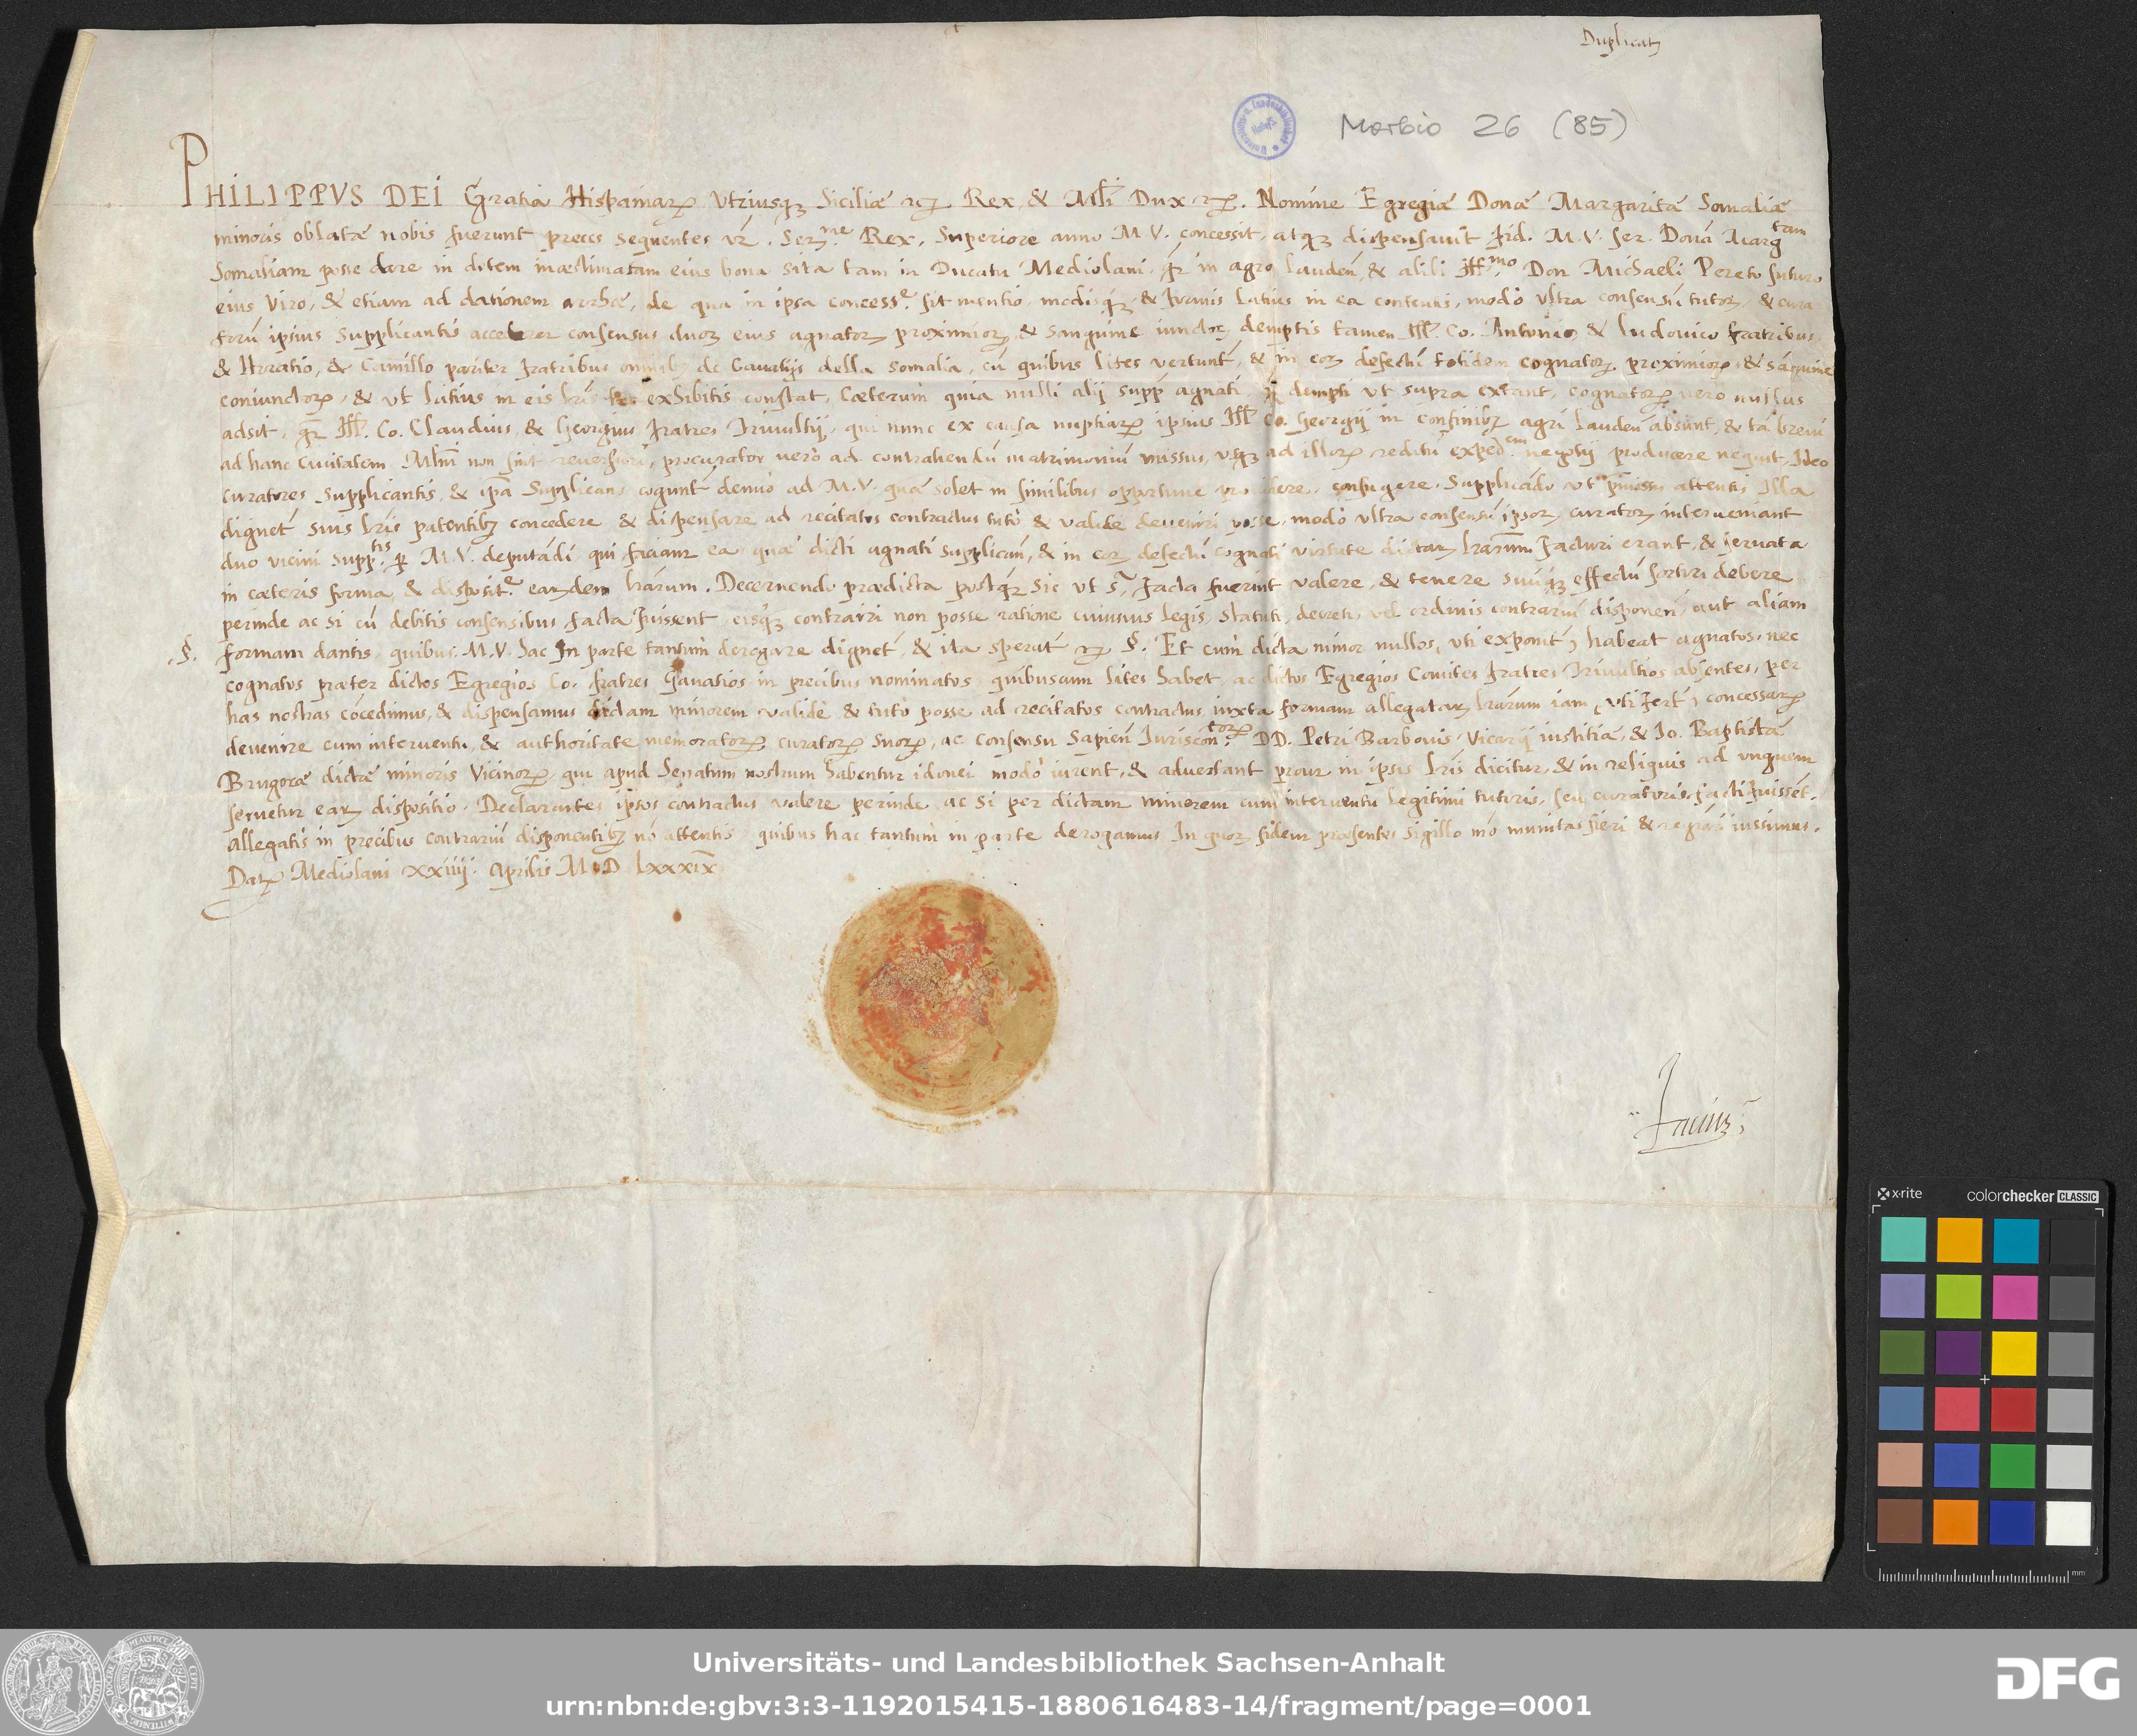 Duplicatȝ
Morbio 26 (85)
PHILIPPVS DEI Gratia Hispaniarȝ Vtriusqȝ Siciliæ Rex, & Mlī Dux. Nomine Egregiæ Donæ Margaritæ Somaliæ
minoris oblatæ nobis fuerunt preces sequentes. Ser.me Rex. Superiore anno M.V. concessit, atqȝ dispensauit fid. M.V. ser. Donā Margtam
Somaliam posse dare in dotem inæstimatam eius bona sita tam in Ducatu Mediolani, in agro lauden, & alibi Illmo Don Michaeli Pereto futuro
eius Viro, & etiam ad dationem arrhæ, de qua in ipsa concess.e fit mentio, & latius in ea contentis, modò vltra consensū tutorȝ, & cura
torū ipsius Supplicantis accederet consensus duorȝ eius agnatorȝ proximiorȝ, & sanguine iunctorȝ demptis tamen Ill. Co. Antonio, & ludouico fratribus,
& Horatio, & Camillo pariter fratribus de Cauatijs della Somalia, cū quibus lites vertunt, & in eorȝ defectū totidem cognatorȝ proximiorȝ, & sāguine
coniunctorȝ, & vt latius in eis exhibitis constat, Cæterum quia nulli alij supp agnati, dempti vt supra extant, cognatorȝ vero nullus
adsit, Ill. Co. Claudius, & Georgius fratres Triuultij, qui nunc ex causa nuptiarȝ ipsius Ill Co. Georgij in confinibȝ agri lauden absunt, & tā breui
ad hanc Ciuitatem Mlnī non sint reuersuri, procurator verò ad contrahendū matrimoniū missus, vsqȝ ad illorȝ reditū negotij producere nequit, Ideo
curatores Supplicantis, & ipsa Supplicans cogunt denuò ad M.V. quæ solet in similibus opportune prouidere, confugere. Supplicādo vt attentis Illa
dignet suis lrīs patentibȝ concedere & dispensare ad recitatos contractus tutò & validè deueniri posse, modò vltra consensū ipsorȝ curatorȝ interueniant
duo vicini supptis ꝑ M.V. deputādi qui faciant ea, quæ dicti agnati Supplican, & in eorȝ defectū cognati virtute dictarȝ lrārum facturi erant, & seruata
in cæteris forma, & disposit.e earȝdem lrārum. Decernendo prædicta postqȝ sic vt facta fuerint valere, & tenere suūqȝ effectū sortiri debere
perinde ac si cū debitis consensibus facta fuissent, eisqȝ contrairi non posse ratione cuiusuis legis, Statuti, decreti, vel ordinis contrariū disponen, aut aliam
.§. formam dantis, quibus M.V. hac In parte tantùm derogare dignet, & ita sperat §. Et cum dicta minor nullos, vti exponit, habeat agnatos, nec
cognatos præter dictos Egregios Co. fratres Cauatios in precibus nominatos, quibuscum lites habet, ac dictos Egregios Comites fratres Triuultios absentes, per
has nostras cōcedimus, & dispensamus dictam minorem validè & tutò posse ad recitatos contractus iuxta formam allegatarȝ lrārum iam, vti fert, concessarȝ
deuenire cum interuentu, & authoritate memoratorȝ curatorȝ suorȝ, ac consensu Sapien Iuriscontorȝ DD. Petri Barbouis Vicarij iustitiæ, & Io. Baptistæ
Brugoræ dictæ minoris Vicinorȝ, qui apud Senatum nostrum habentur idonei modò iurent, & aduertant prout in ipsis lrīs dicitur, & in reliquis ad vnguem
seruetur earȝ dispositio. Declarantes ipsos contractus valere perinde ac si per dictam minorem cum interuentu legitimi tutoris, seu curatoris, facti fuissēt.
Allegatis in precibus contrariū disponentibȝ nō attentis, quibus hac tantùm in parte derogamus. In quorȝ fidem præsentes sigillo nrō munitas fieri & iussimus.
Datȝ Mediolani xxiiij. Aprilis M.D.lxxxix
x-rite colorchecker CLASSIC
mm
Universitäts- und Landesbibliothek Sachsen-Anhalt
urn:nbn:de:gbv:3:3-1192015415-1880616483-14/fragment/page=0001
DFG